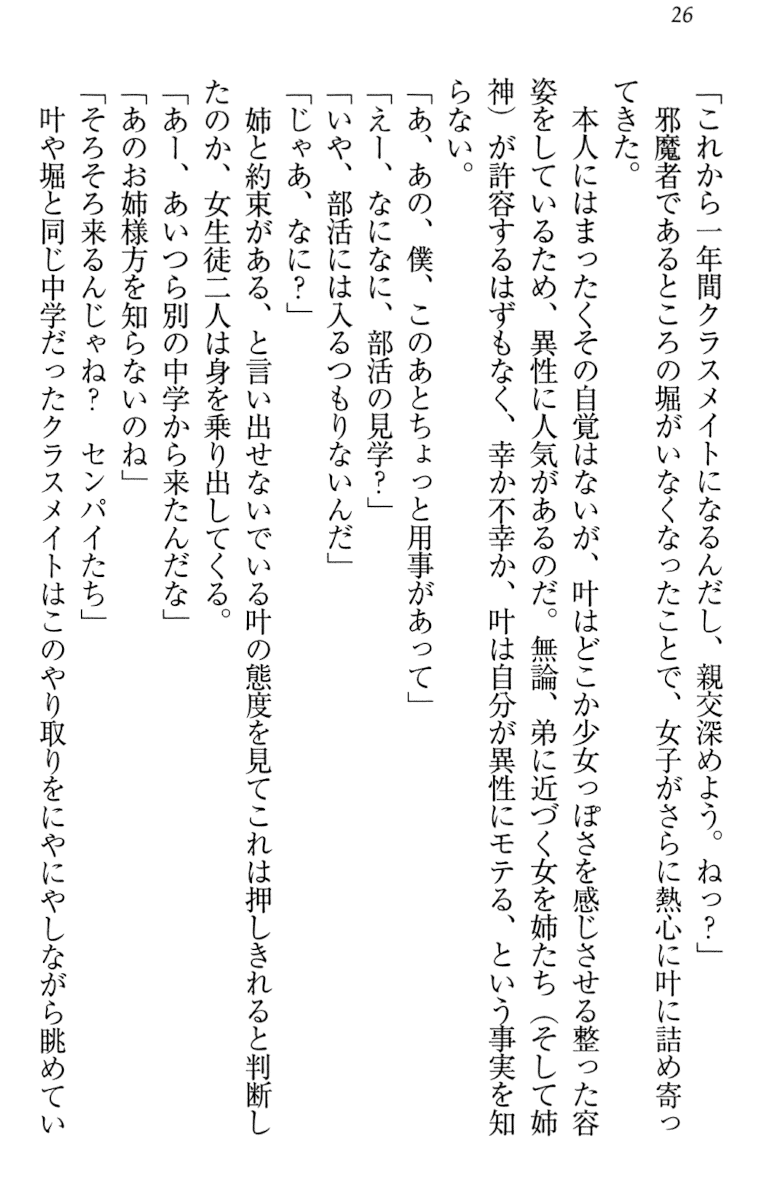 26
「これから一年間クラスメイトになるんだし、親交深めよう。ねっ？」
　邪魔者であるところの堀がいなくなったことで、女子がさらに熱心に叶に詰め寄っ
てきた。
　本人にはまったくその自覚はないが、叶はどこか少女っぽさを感じさせる整った容
姿をしているため、異性に人気があるのだ。無論、弟に近づく女を姉たち（そして姉
神）が許容するはずもなく、幸か不幸か、叶は自分が異性にモテる、という事実を知
らない。
「あ、あの、僕、このあとちょっと用事があって」
「えー、なになに、部活の見学？」
「いや、部活には入るつもりないんだ」
「じゃあ、なに？」
　姉と約束がある、と言い出せないでいる叶の態度を見てこれは押しきれると判断し
たのか、女生徒二人は身を乗り出してくる。
「あー、あいつら別の中学から来たんだな」
「あのお姉様方を知らないのね」
「そろそろ来るんじゃね？　センパイたち」
　叶や堀と同じ中学だったクラスメイトはこのやり取りをにやにやしながら眺めてい